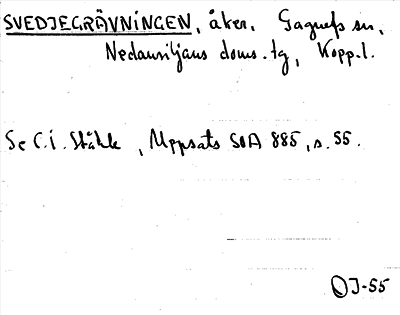 SVEDJEGRÄVNINGEN, åker. Gagnefs sn,
Nedansiljans doms. tg, Kopp. l.
Se C.I. Ståhle, Uppsats SOA 885, s. 55.
OJ-55